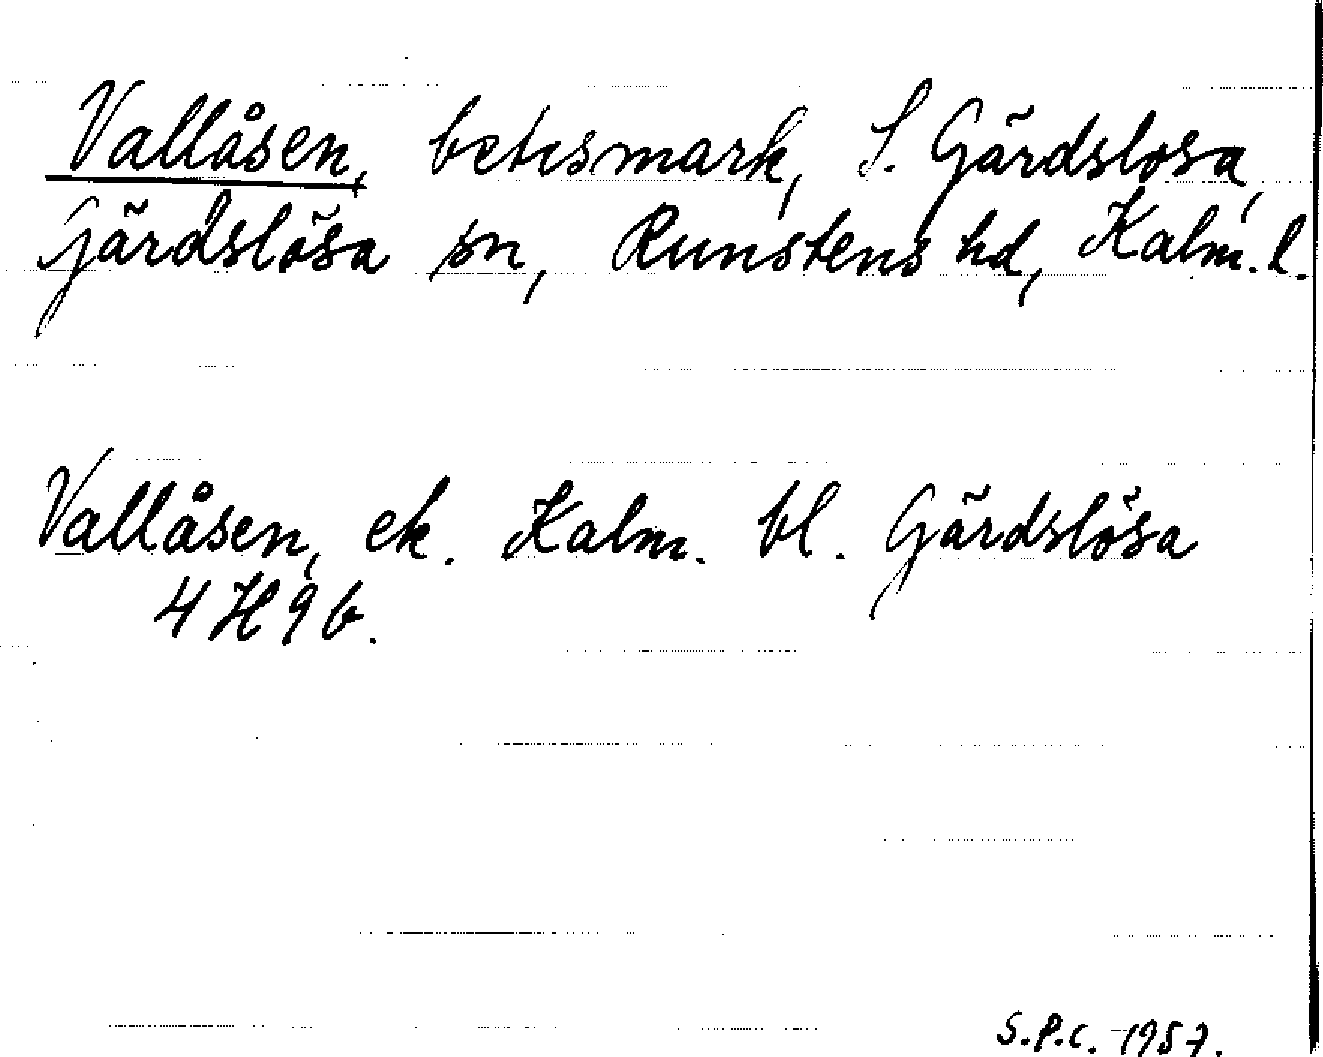 Vallåsen, betesmark, S. Gärdslösa,
Gärdslösa sn, Runstens hd, Kalm. l.
Vallåsen, ek. Kalm. bl. Gärdslösa
4 H 9 b.
S.P.C. 1957.